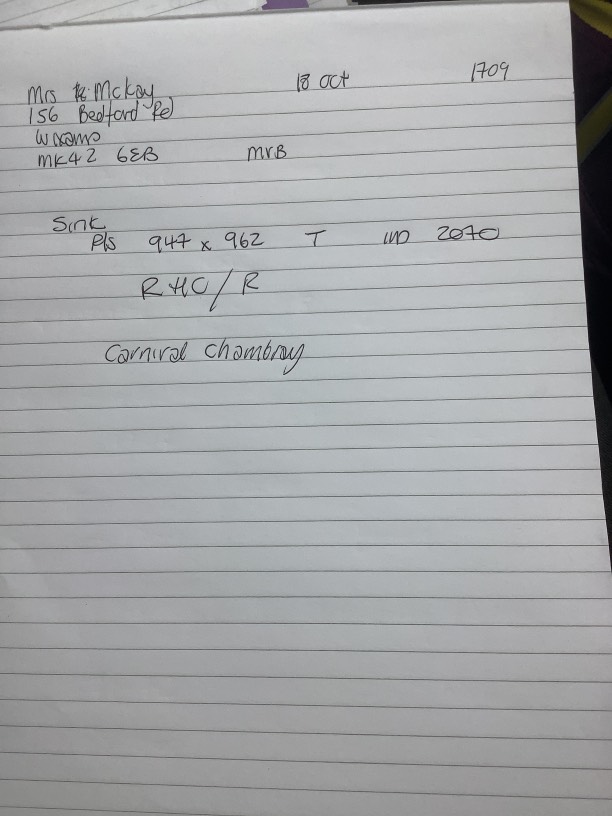 Mrs McKay 18 Oct 1709
156 Bedford Rd
Wixams
MK42 6EB MVB
Sink
Pls 947 x 962 T 2070
RHC/R
Carnival Chambray